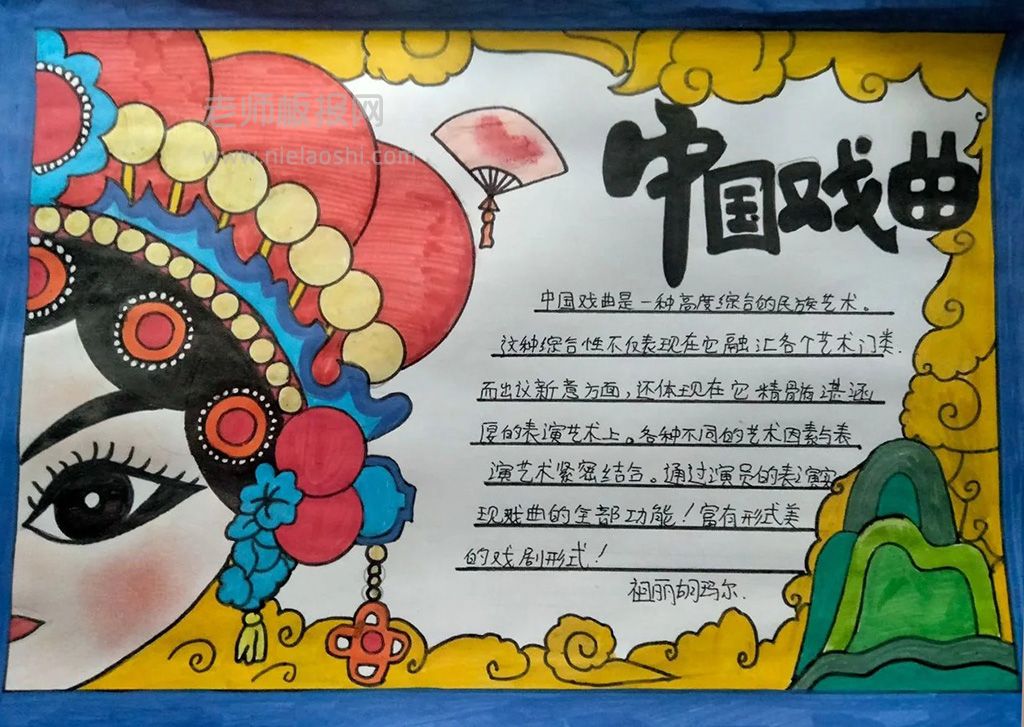 老师板报网
www.nielaoshi.com
中国戏曲
中国戏曲是一种高度综合的民族艺术。
这种综合性不仅表现在它融汇各个艺术门类
而出议新意方面，还体现在它精髓湛涵
厚的表演艺术上。各种不同的艺术因素与表
演艺术紧密结合。通过演员的表演实
现戏曲的全部功能！富有形式美
的戏剧形式！
祖丽胡玛尔.